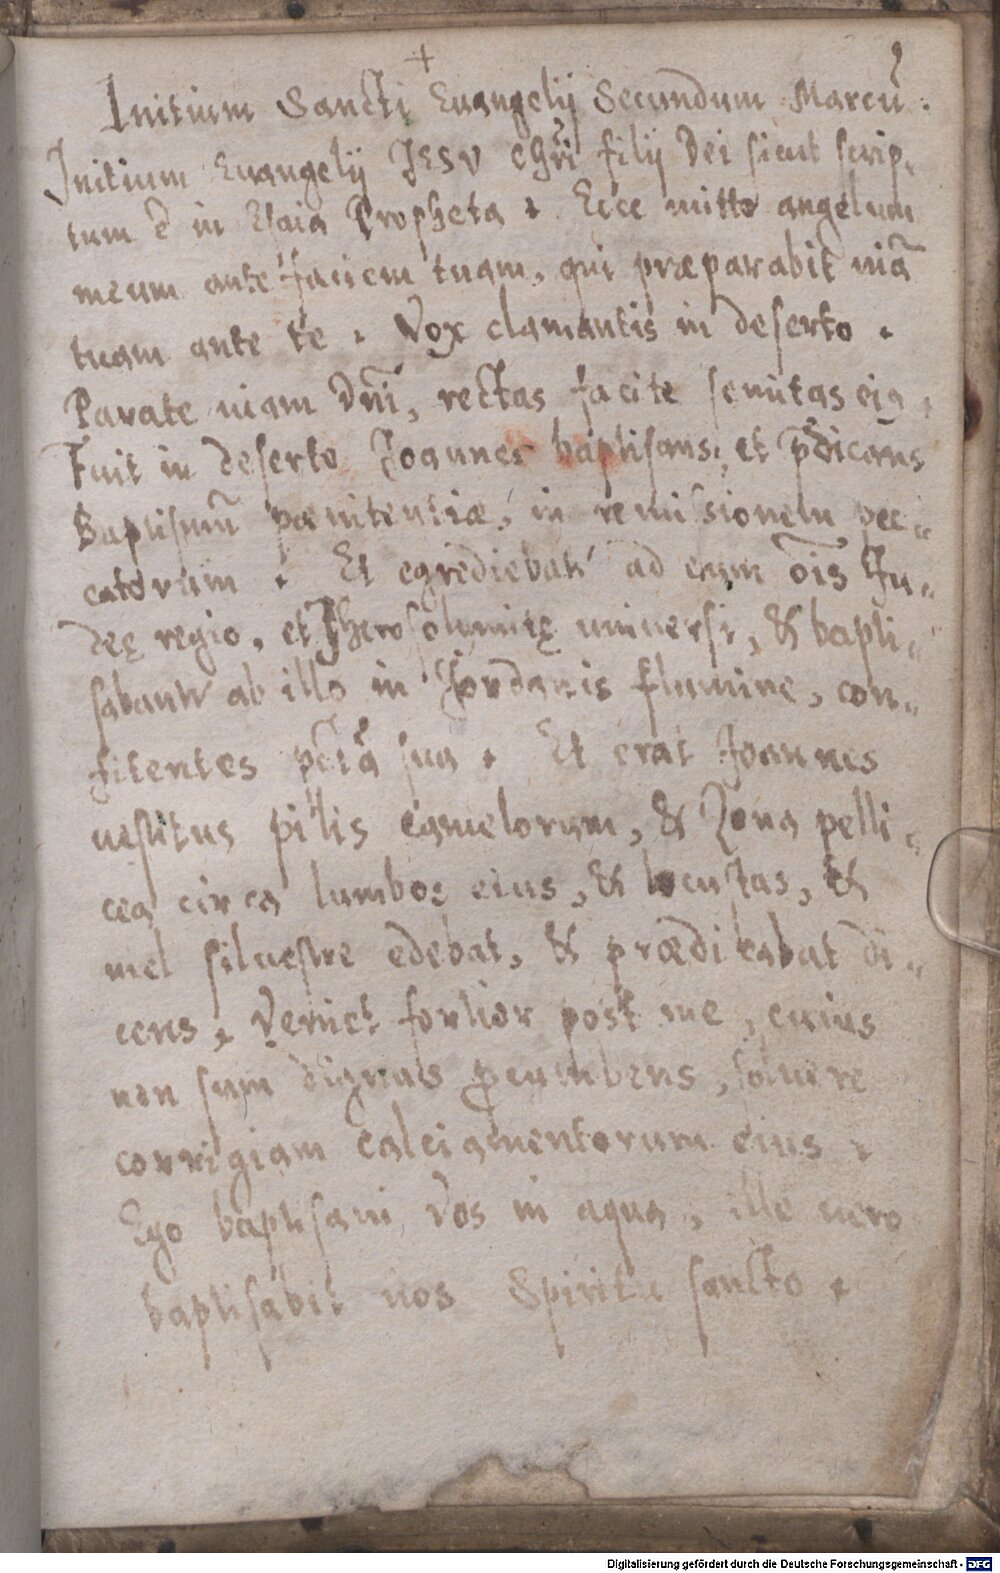 +
Initium Sancti Euangelij Secundum Marcū.
Initium Euangelij JESV Chrī filij Dei sicut scrip-
tum ē in Esaia Propheta. Ecce mitto angelum
meum ante faciem tuam, qui præparabit uiā
tuam ante te. Vox clamantis in deserto.
Parate uiam Dnī, rectas facite semitas eiꝯ,
Fuit in deserto Joannes baptisans, et p̄dicans
Baptismū pœnitentiæ, in remissionem pec-
catorum. Et egrediebat' ad eum oīs Ju-
deę regio, et Jherosolymitę uniuersi, & bapti-
sabant' ab illo in Jordanis flumine, con-
fitentes pctā sua. Et erat Joannes
uestitus pilis camelorum, & Zona pelli-
cea circa lumbos eius, & locustas, &
mel siluestre edebat, & prædicabat di-
cens, Veniet fortior post me, cuius
non sum dignus ꝓcumbens, soluere
corrigiam calciamentorum eius.
Ego baptisaui Vos in aqua, ille uero
baptisabit uos Spiritu sancto.
Digitalisierung gefördert durch die Deutsche Forschungsgemeinschaft - DFG